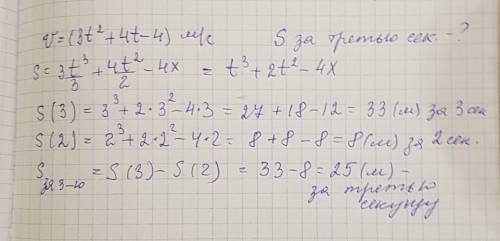 v=(3t²+4t-4) м/с S за третью сек. -?
S=3t³/3+4t²/2-4x = t³+2t²-4x
S(3)=3³+2·3²-4·3=27+18-12=33(м) за 3 сек
S(2)=2³+2·2²-4·2=8+8-8=8(м) за 2 сек.
S за 3-ю = S(3)-S(2) = 33-8=25(м) -
за третью
секунду